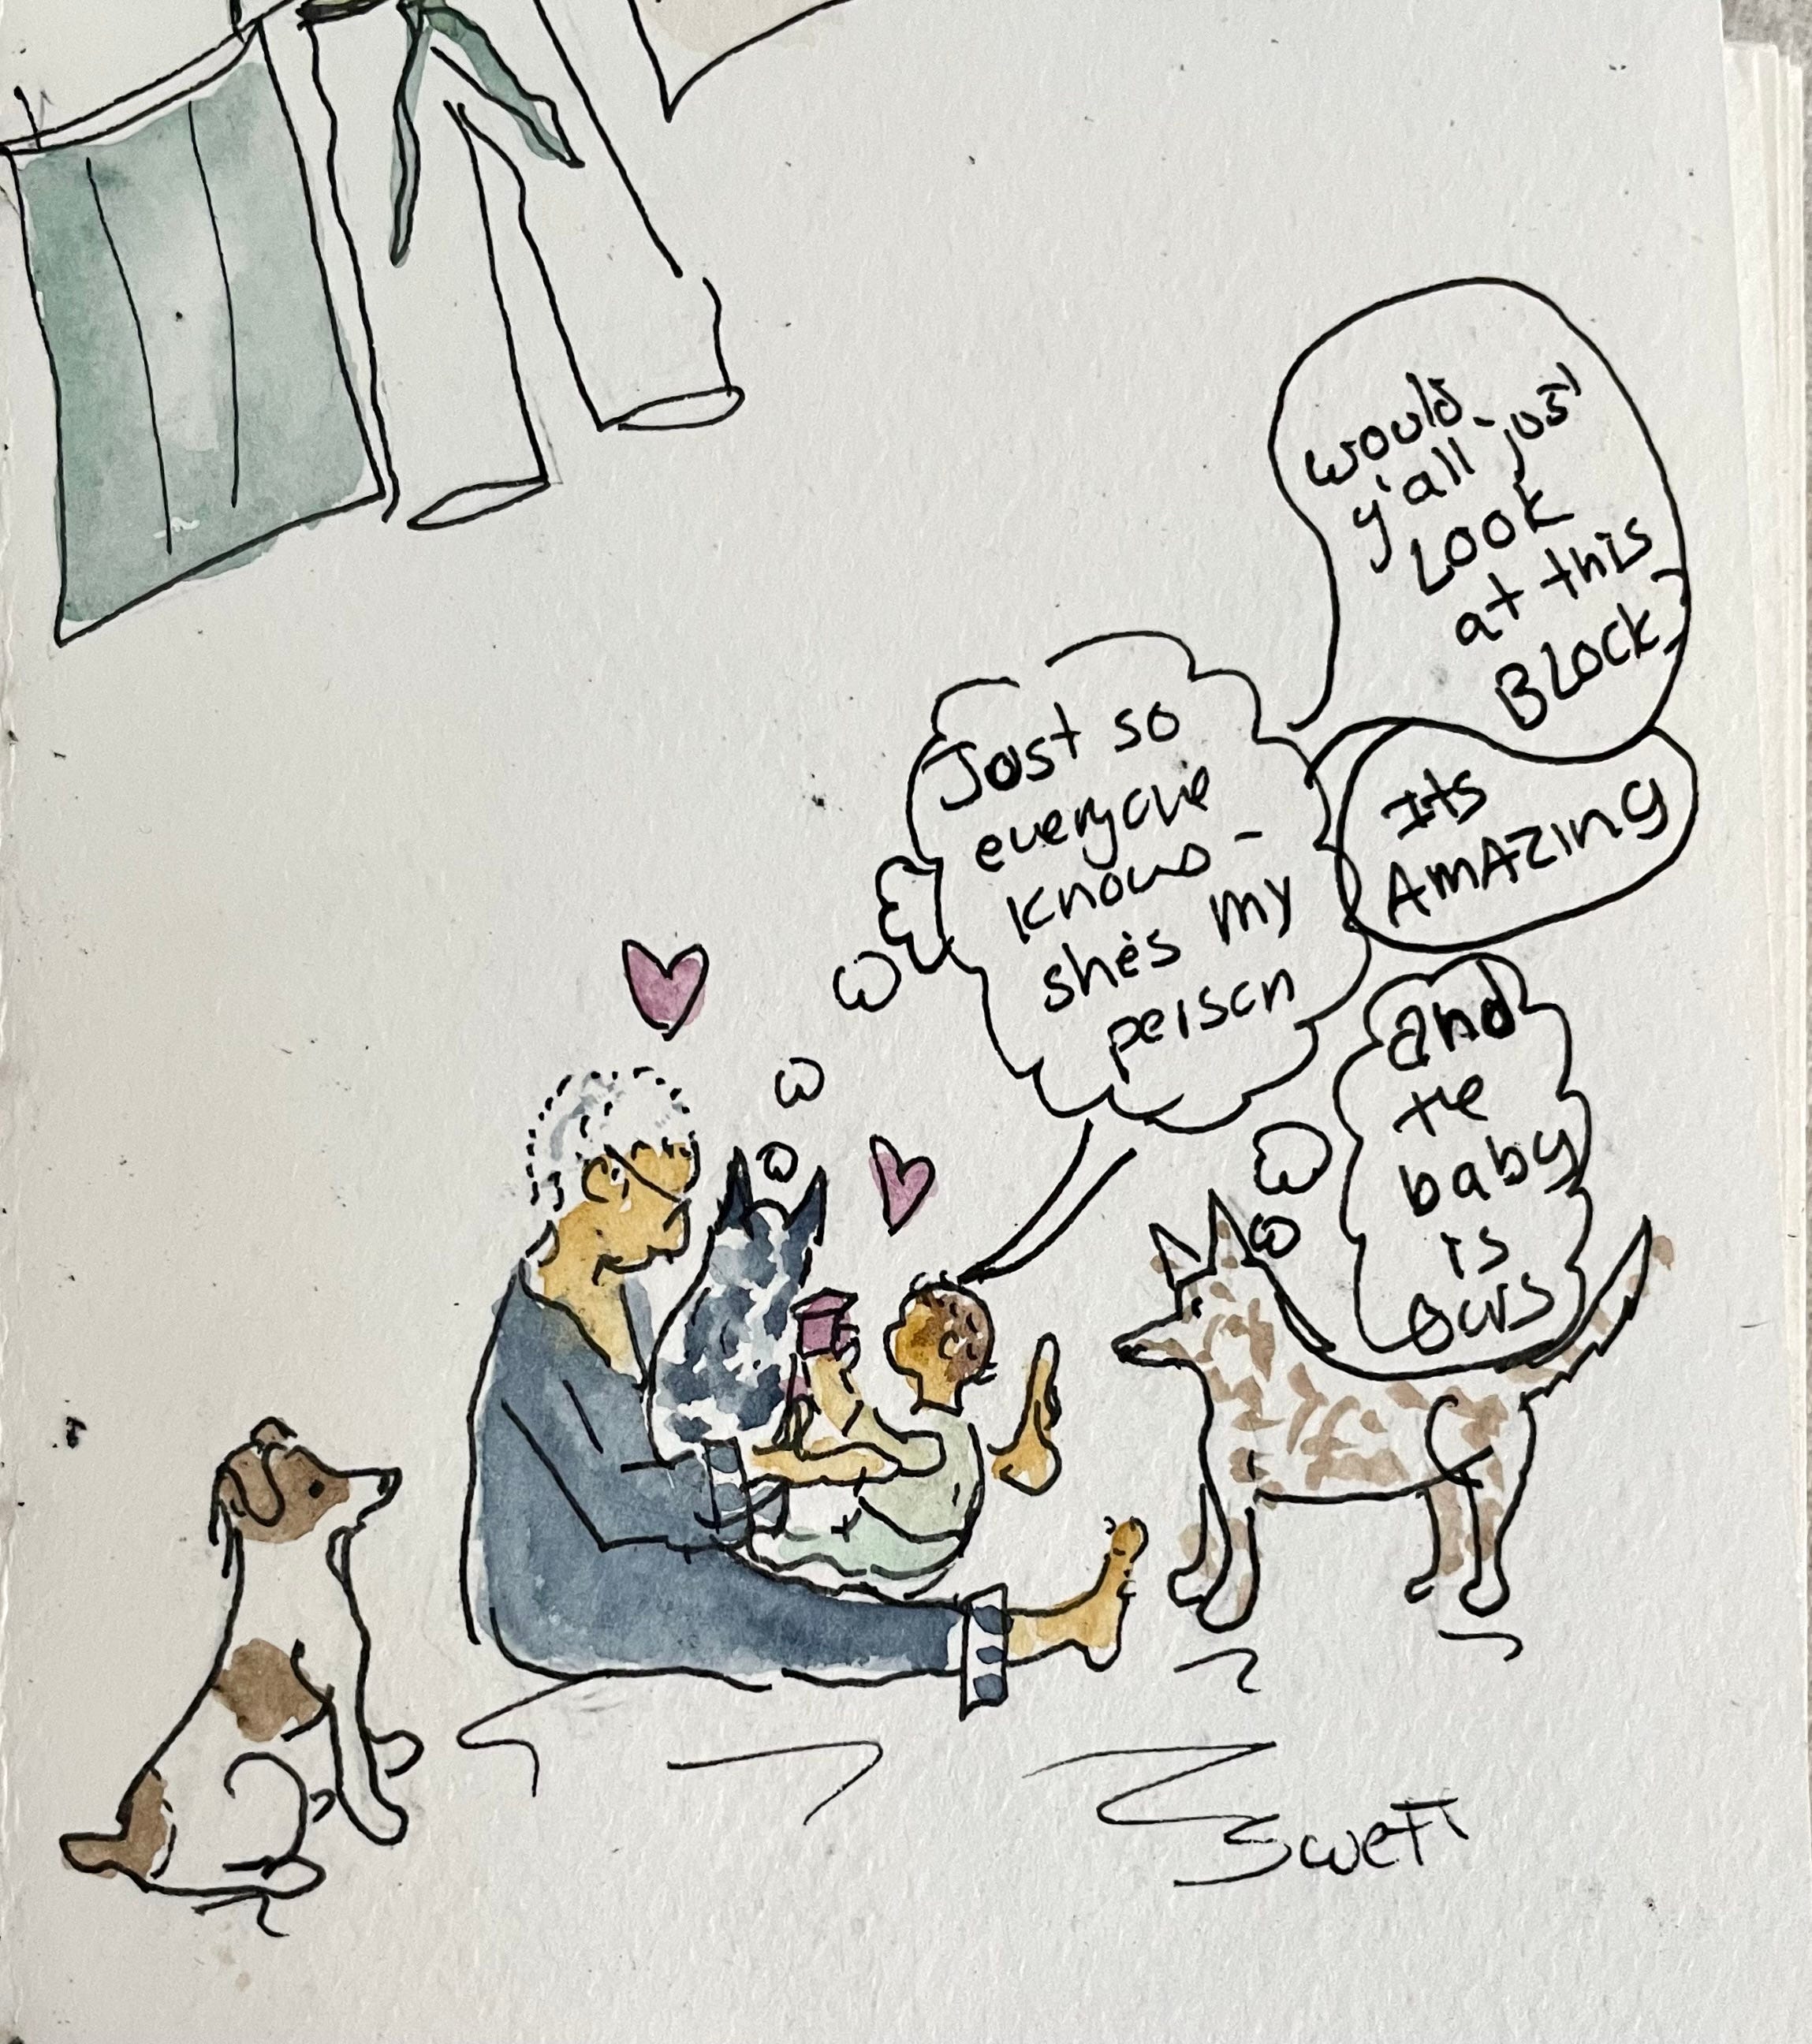 would
y'all just
LOOK
at this
BLOCK
Its
AMAZING
Just so
everyone
knows -
she's my
person
and
the
baby
is
ours
Swett